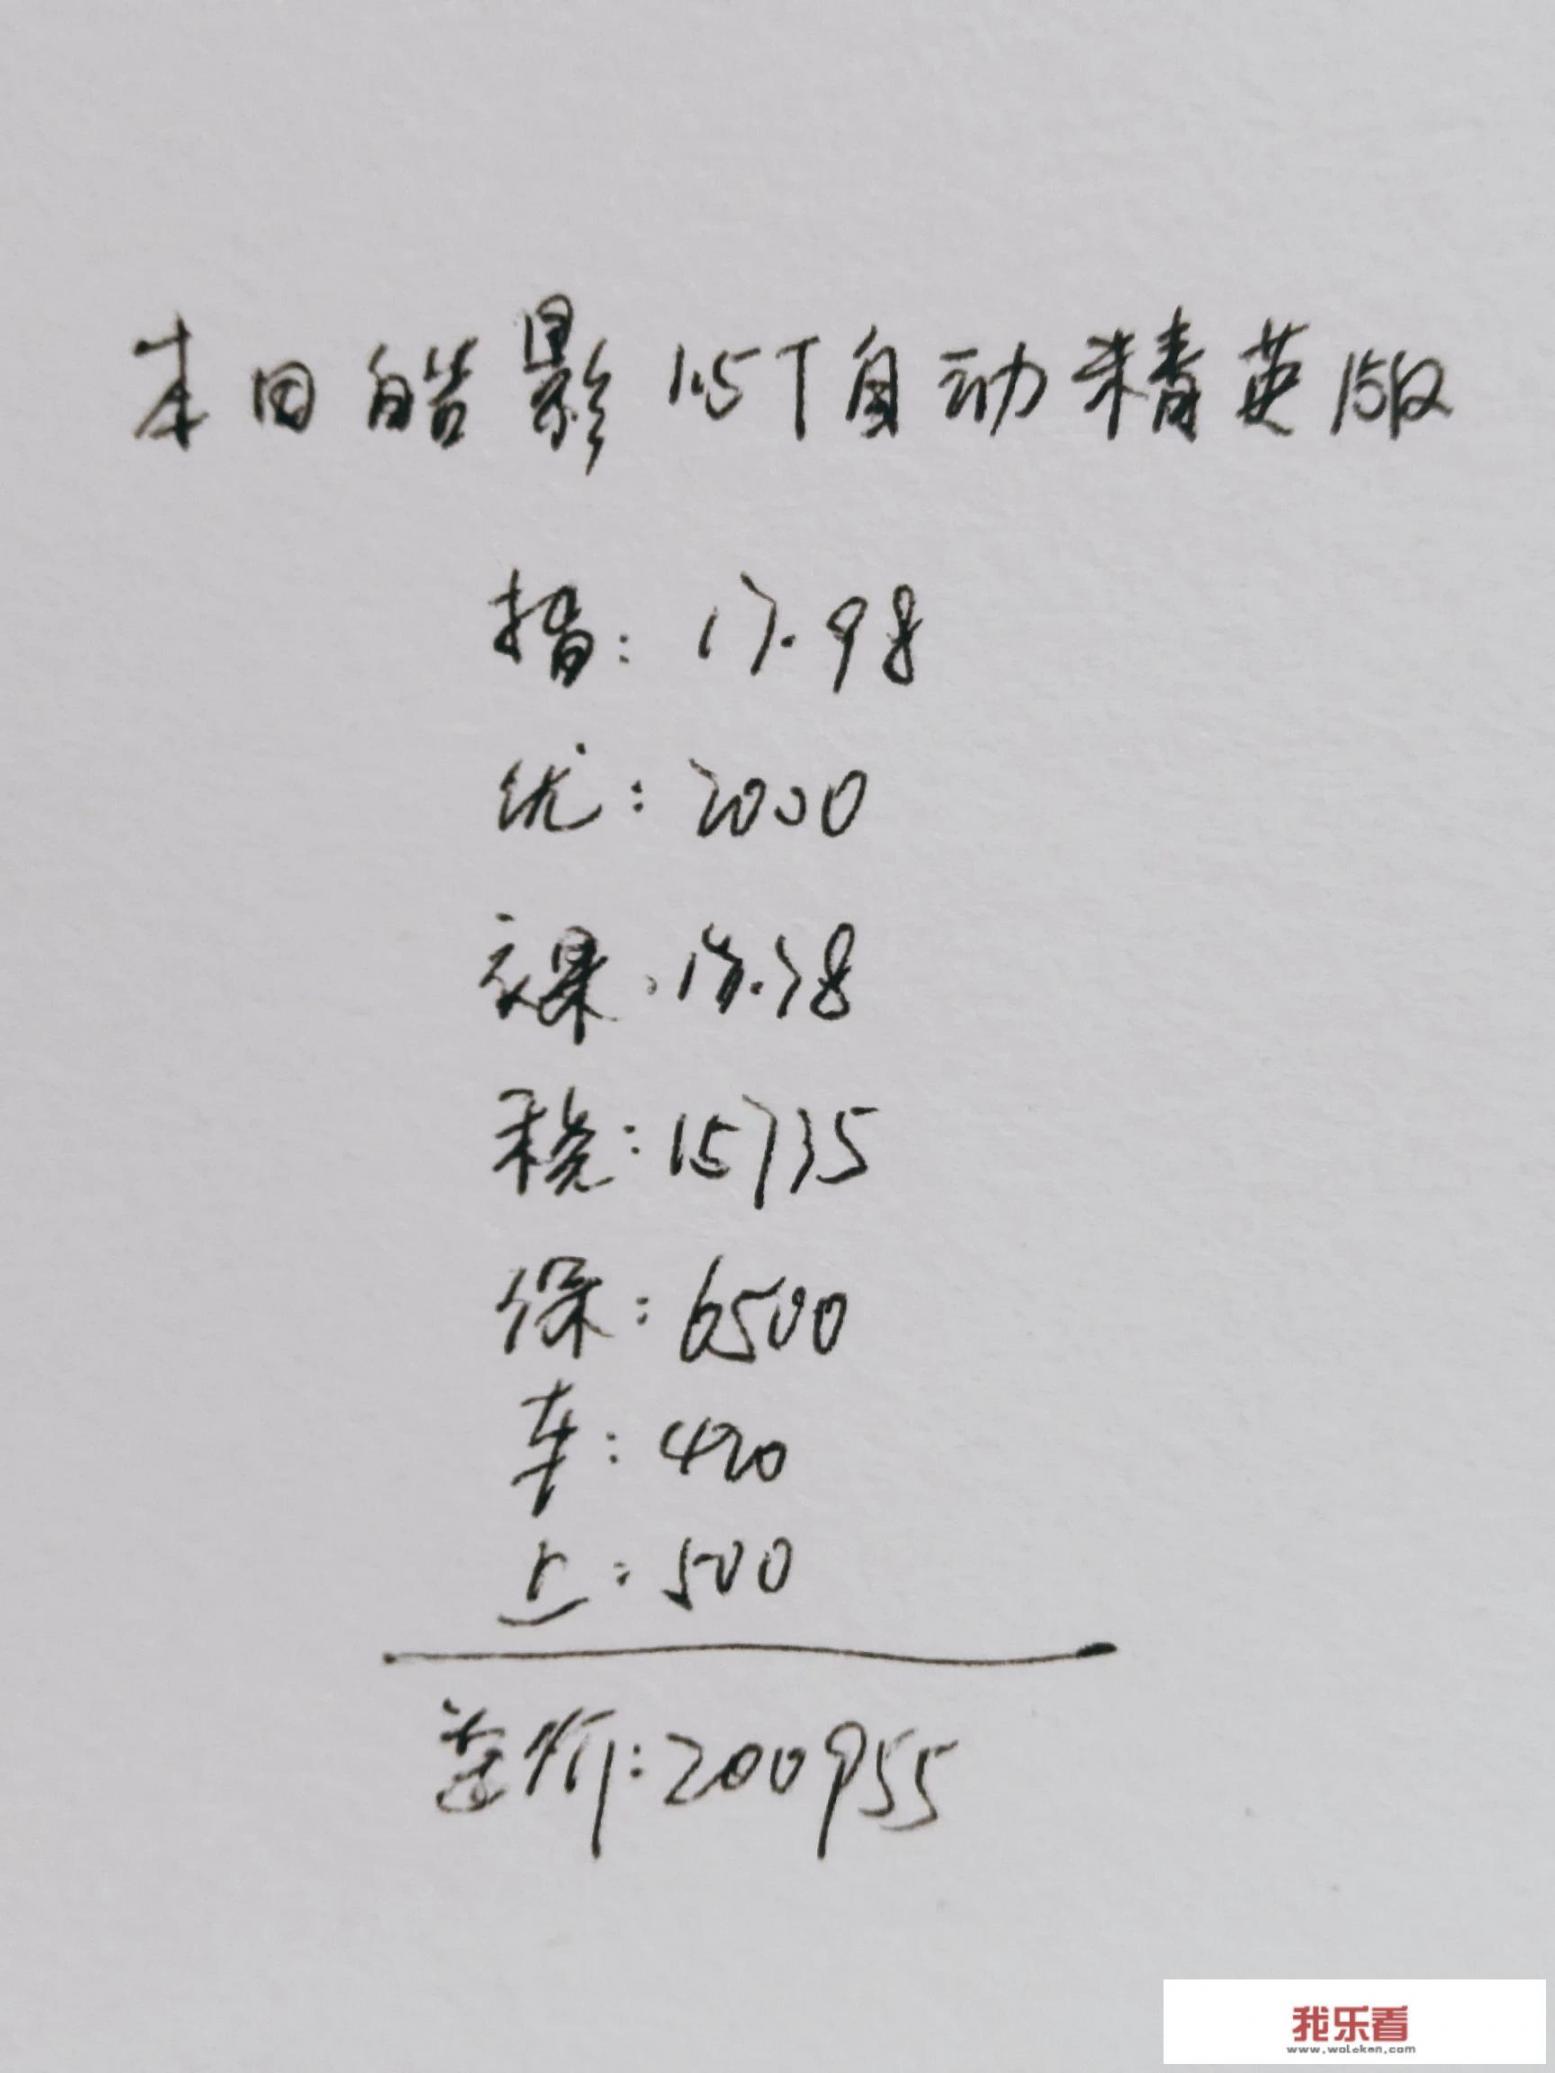 本田皓影1.5T自动精英版
指:17.98
优:2000
裸:17.78
税:15735
保:6500
车:420
上:500
总价:200955
我乐看
www.woleken.com